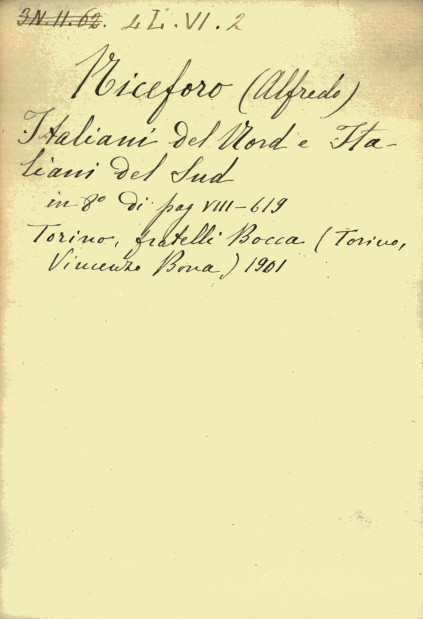 3N.11.62. 4 L.VI.2
Niceforo (Alfredo)
Italiani del Nord e Ita-
liani del Sud
in 8° di pag VIII-619
Torino, fratelli Bocca (Torino,
Vincenzo Bona) 1901